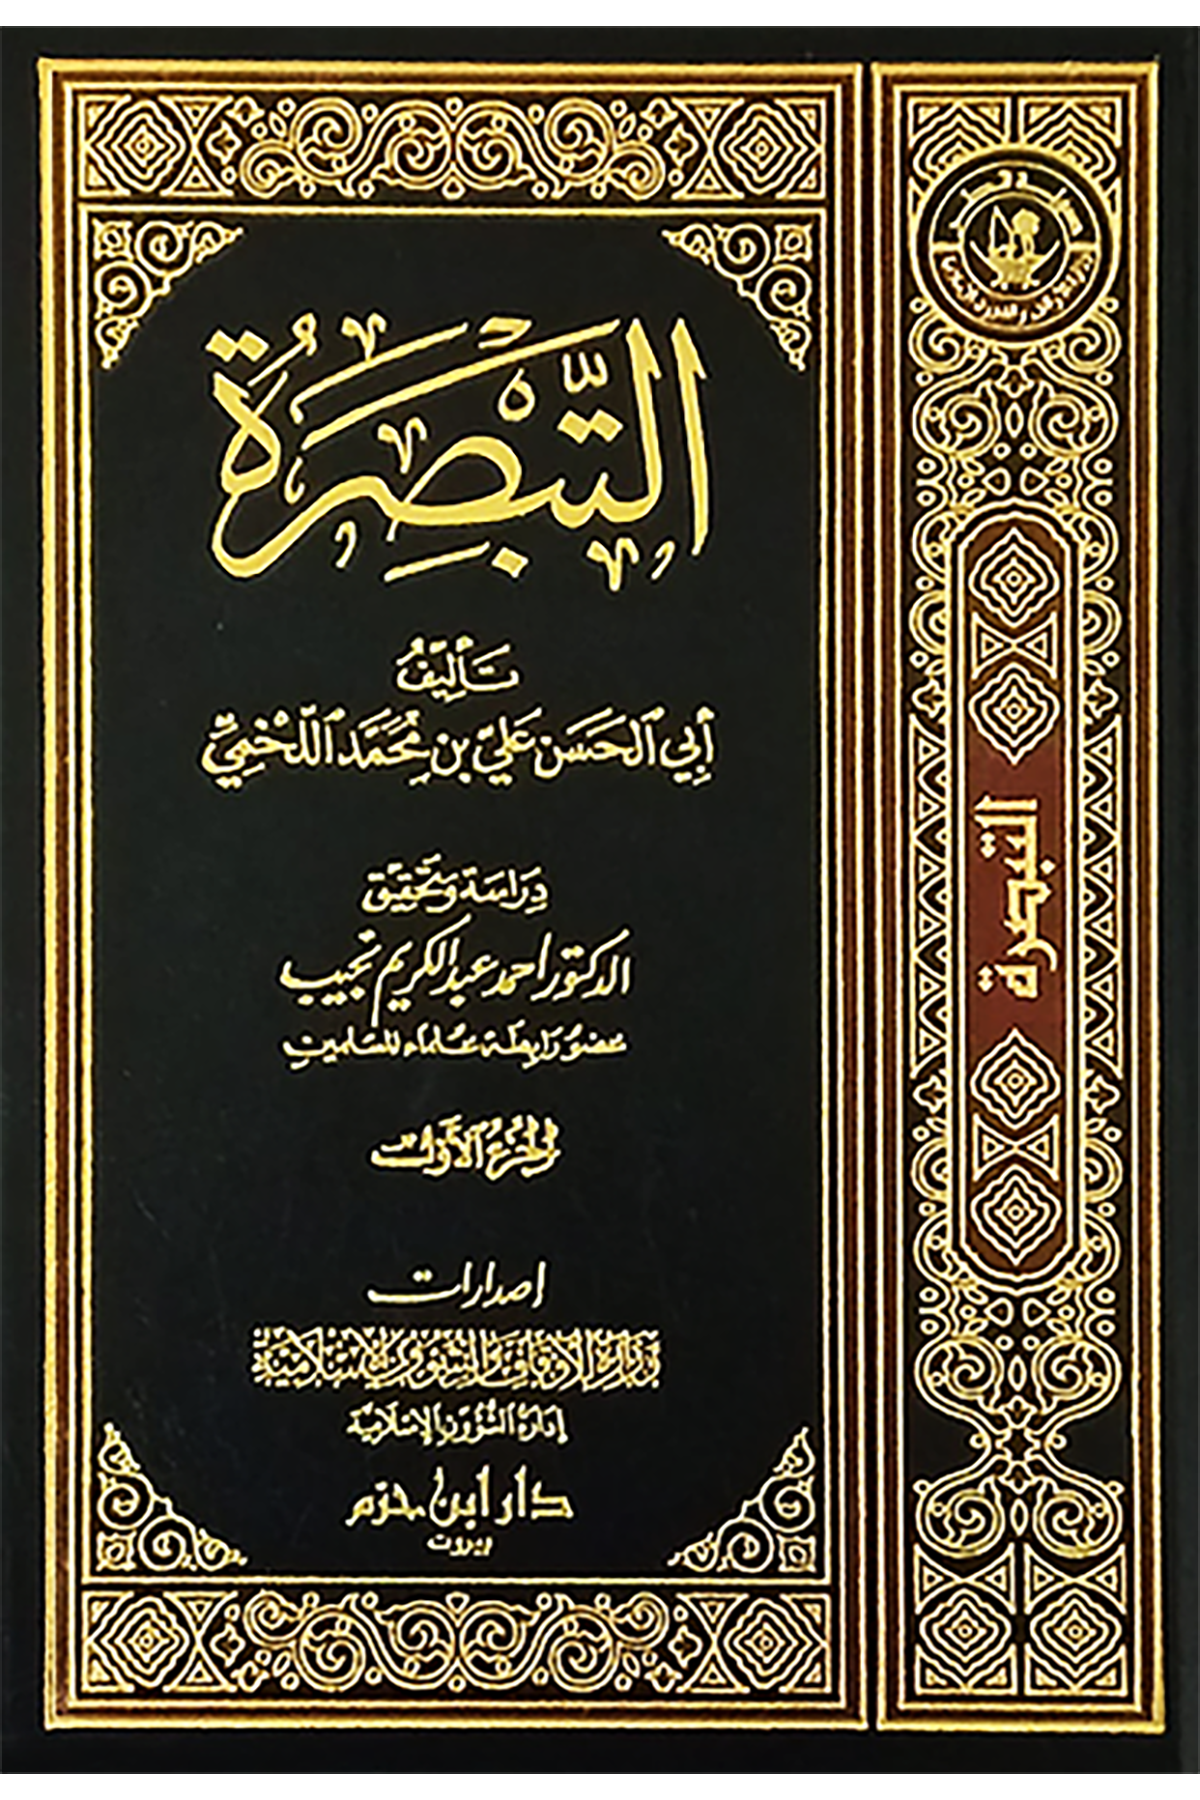 التَّبْصِرَةُ
تَأْلِيفُ
أَبِي الحَسَن عَلِيّ بْن مُحَمَّد اللَّخْمِيّ
دِرَاسَة وَتَحْقِيق
الدكتور أحمد عبد الكريم نجيب
عضو رابطة علماء المسلمين
الجزء الأوّل
إصدارات
وزارة الأوقاف والشؤون الإسلامية
إدارة الشؤون الإسلامية
دار ابن حزم
بيروت
التبصرة